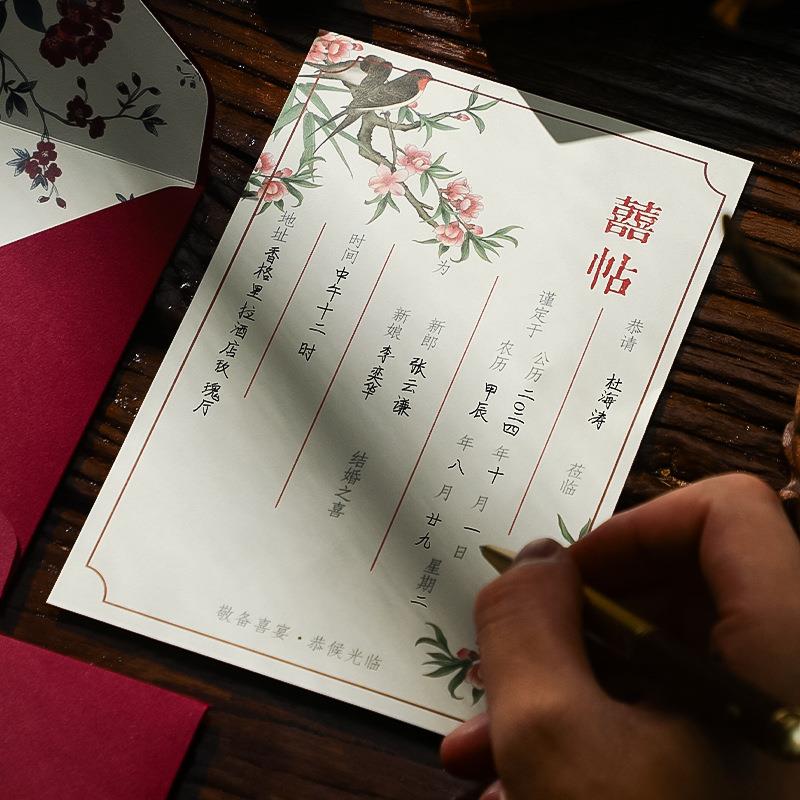 囍帖
恭请 杜海涛 莅临
谨定于 公历 二〇二四 年 十 月 一 日
农历 甲辰 年 八 月 廿九 星期二
为
新郎 张云谦
新娘 李奕华
结婚之喜
时间 中午十二时
地址 香格里拉酒店玫瑰厅
敬备喜宴·恭候光临